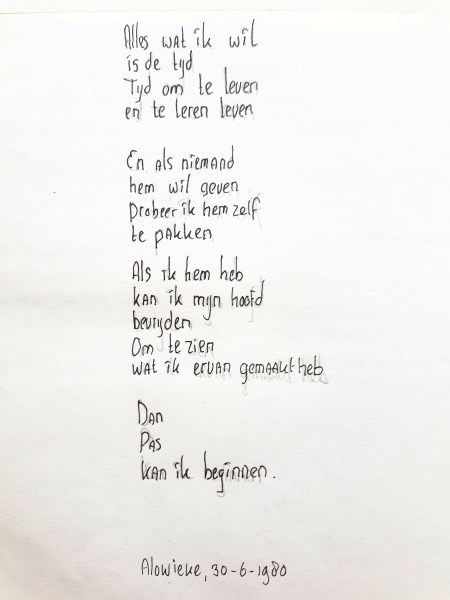 Alles wat ik wil
is de tijd
Tijd om te leven
en te leren leven
En als niemand
hem wil geven
Probeer ik hem zelf
te pakken
Als ik hem heb
kan ik mijn hoofd
bevrijden
Om te zien
wat ik ervan gemaakt heb
Dan
Pas
kan ik beginnen.
Alowieke, 30-6-1980